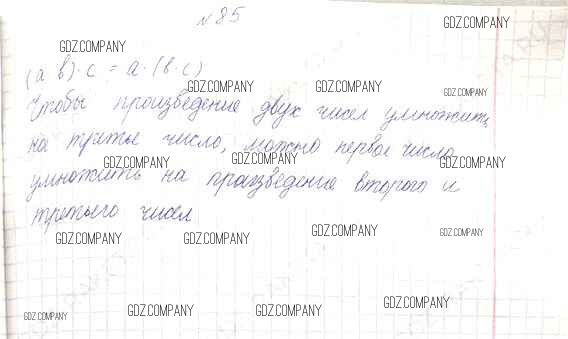 № 85
GDZ.COMPANY
GDZ.COMPANY
(а в)·с = а·(в·с)
GDZ.COMPANY GDZ.COMPANY GDZ.COMPANY
Чтобы произведение двух чисел умножить
GDZ.COMPANY
на третье число, можно первое число
GDZ.COMPANY GDZ.COMPANY GDZ.COMPANY
умножить на произведение второго и
третьего чисел
GDZ.COMPANY GDZ.COMPANY GDZ.COMPANY GDZ.COMPANY
GDZ.COMPANY GDZ.COMPANY GDZ.COMPANY GDZ.COMPANY